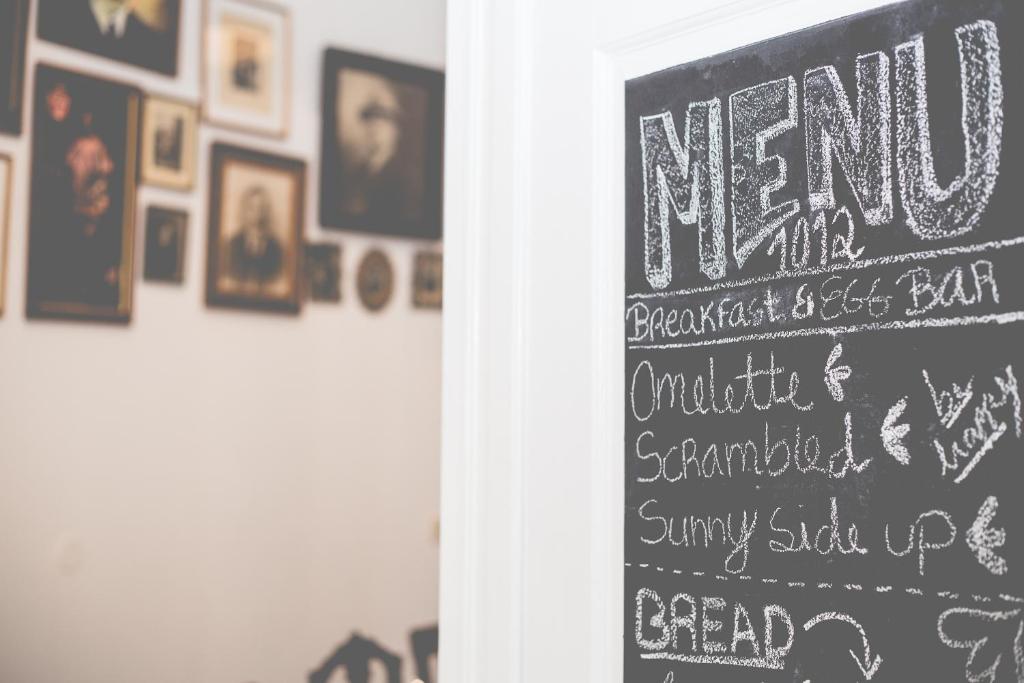 MENU
1012
Breakfast & EGG BAR
Omelette
Scrambled
Sunny side up
by
BREAD